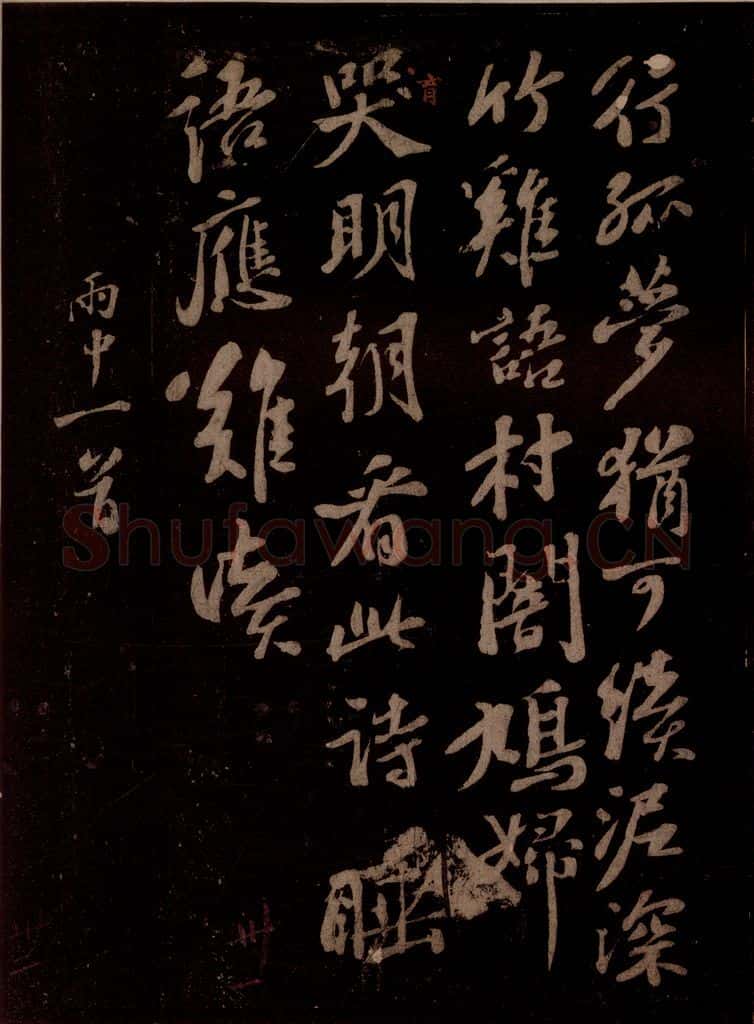 行孤夢猶可續泥深
竹雞語村闇鳩婦
哭明朝看此詩睡
語應難讀
雨中一首
育
Shufawang.CN